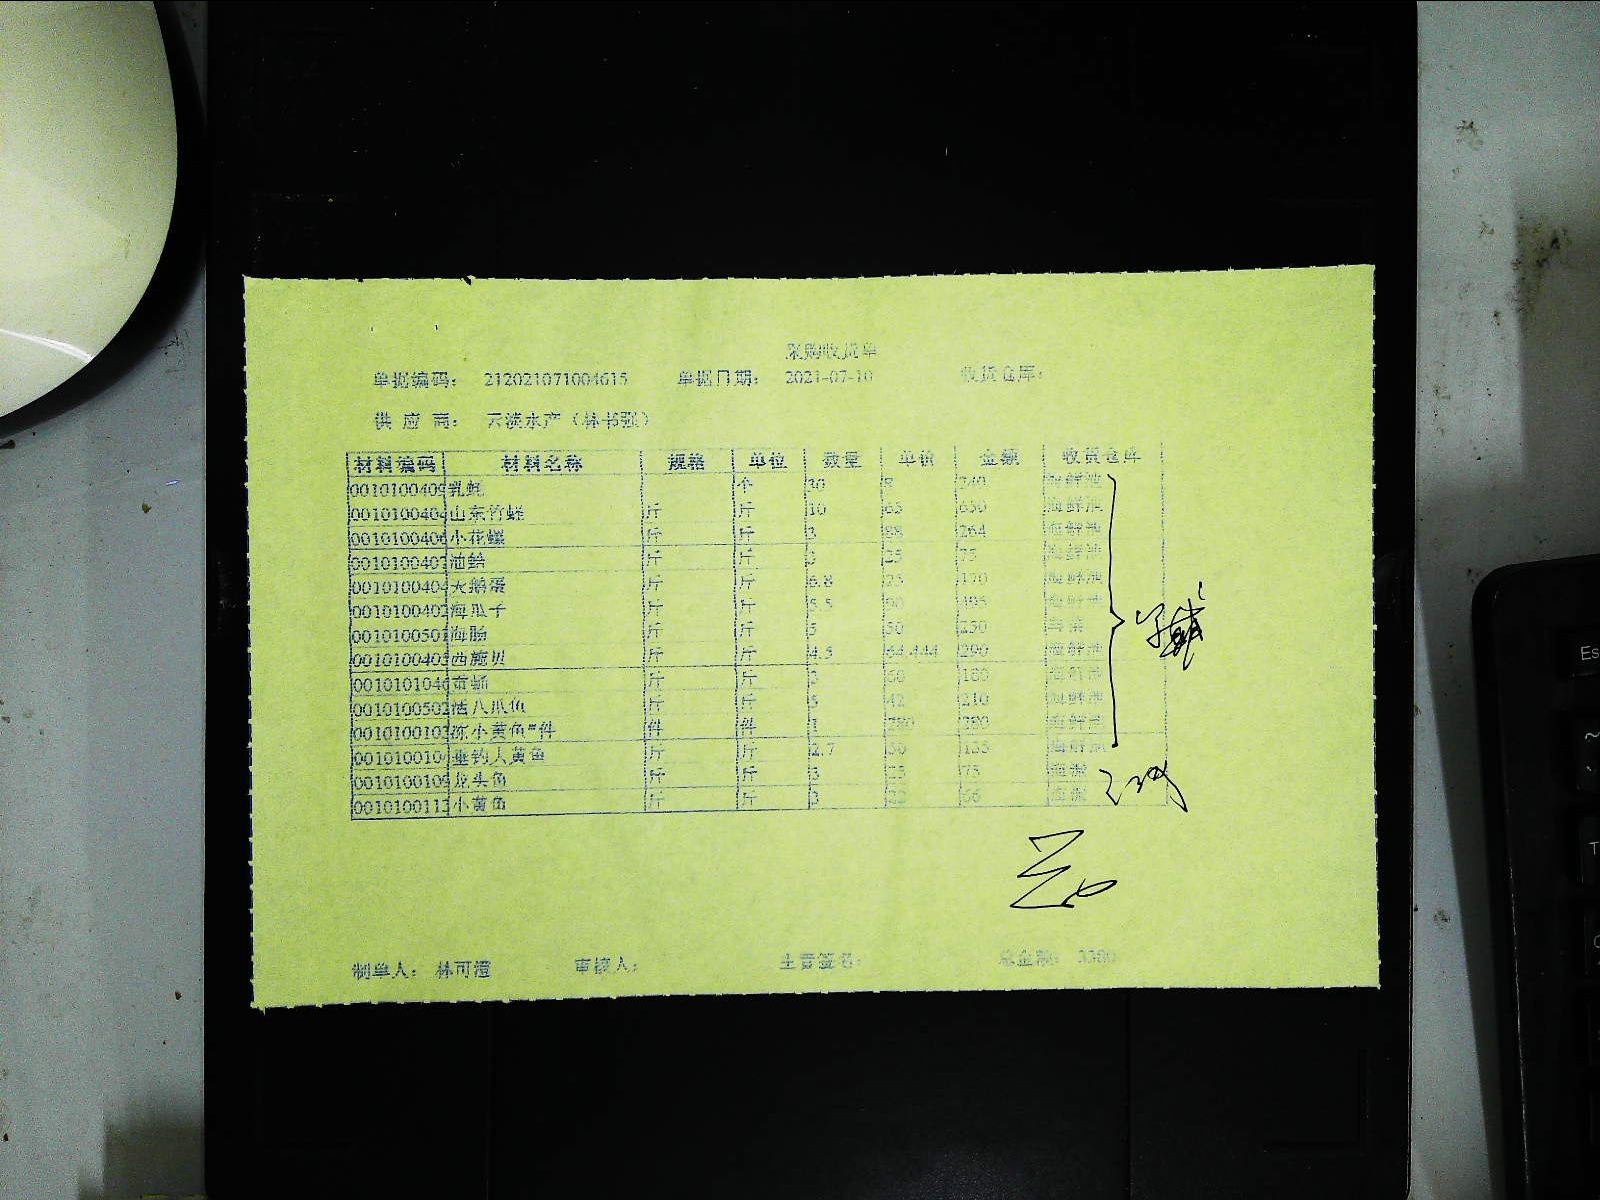 采购收货单
单据编码： 212021071004615 单据日期： 2021-07-10 收货仓库：
供 应 商： 天淡水产（林书强）
材料编码 材料名称 规格 单位 数量 单价 金额 收货仓库
0010100409 乳蚝 个 30 8 240 海鲜池
0010100404 山东竹蛏 斤 斤 10 65 650 海鲜池
0010100406 小花螺 斤 斤 3 88 264 海鲜池
0010100407 油蛤 斤 斤 3 25 75 海鲜池
0010100404 天鹅蛋 斤 斤 6.8 25 170 海鲜池
0010100402 海瓜子 斤 斤 5.5 90 495 海鲜池
0010100501 海肠 斤 斤 5 50 250
0010100403 西施贝 斤 斤 4.5 64.444 290 海鲜池
0010101046 斤 斤 3 60 180 海鲜池
0010100502 活八爪鱼 斤 斤 5 42 210 海鲜池
0010100103 冻小黄鱼*件 件 件 1 280 280 海鲜池
0010100104 垂钓大黄鱼 斤 斤 2.7 50 135 海鲜池
0010100109 龙头鱼 斤 斤 3 25 75
0010100113 小黄鱼 斤 斤 3 22 66
制单人： 林可澄 审核人： 主管签名： 总金额： 3380